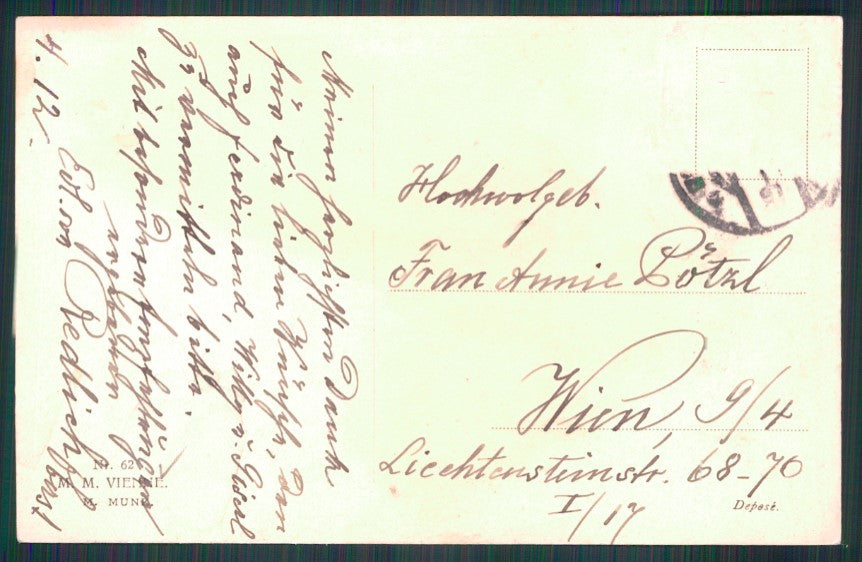 Meinen herzlichsten Dank
für die lieben Wünsche, den
auch Ferdinand, Willy u. Gisel
zu vermitteln bitte.
Mit besonderen Empfehlungen
ergebener
Redlich
4. 12.
Hochwolgeb.
Frau Annie Pötzl
Wien, 9/4
Liechtensteinstr. 68-70
I/17
Nr. 62
M. M. VIENNE.
M. MUNK.
Deposé.